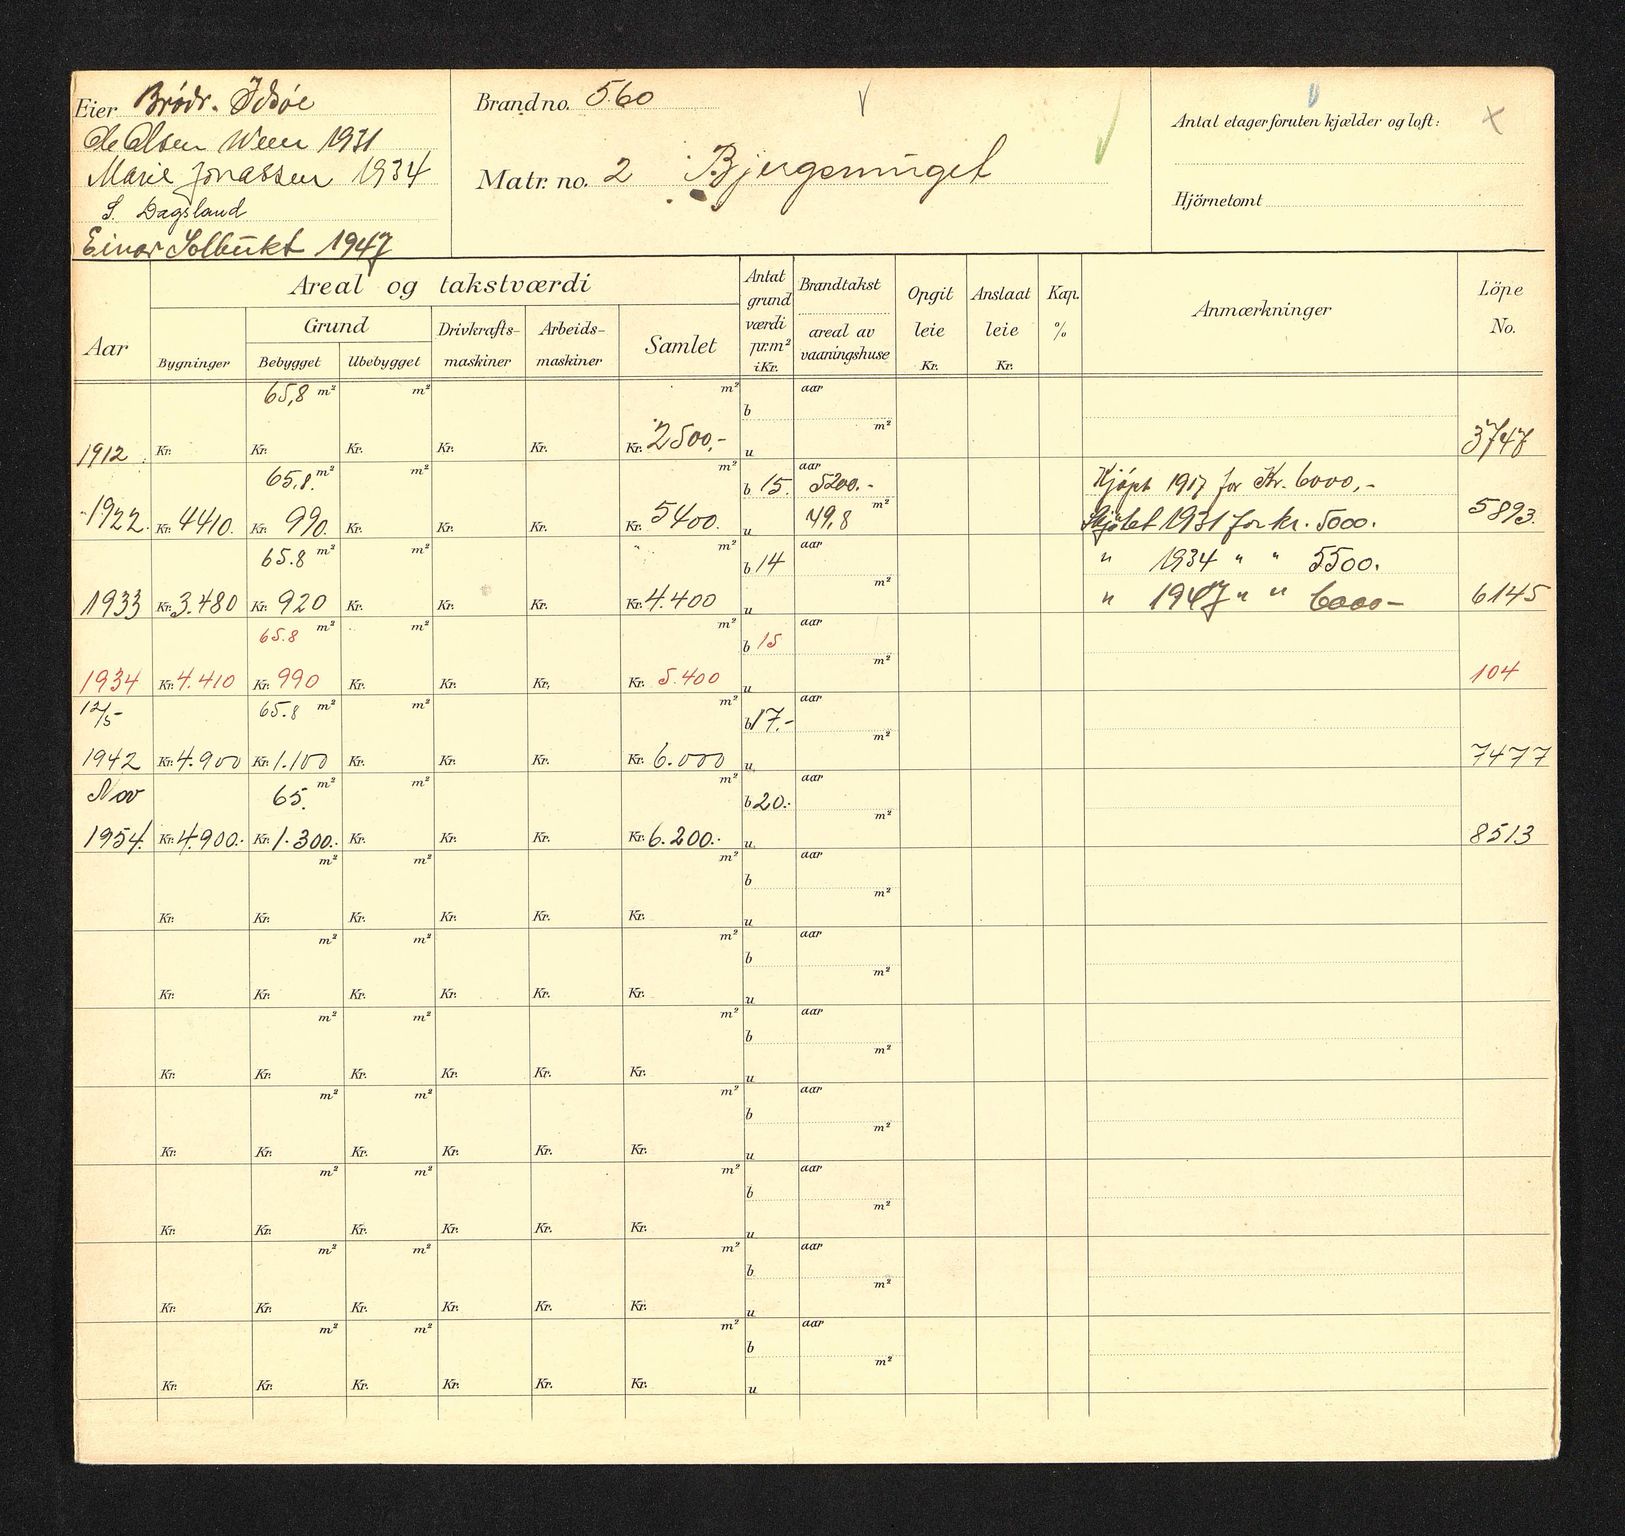 Eier Brödr. Idsøe
Ole Olsen Ween 1931
Marie Jonassen 1934
S. Dagsland
Einar Solbukt 1947
Brand no. 560
Matr. no. 2 Bjergsmuget
Antal etager foruten kjælder og loft:
Hjörnetomt
Aar
Areal og takstværdi
Bygninger
Grund
Bebygget Ubebygget
Drivkrafts-maskiner
Arbeids-maskiner
Samlet
Antat grund værdi pr. m² i Kr.
Brandtakst
areal av vaaningshuse
Opgit leie Kr.
Anslaat leie Kr.
Kap. %
Anmærkninger
Löpe No.
65,8 m² m² m² b aar
1912 Kr. Kr. Kr. Kr. Kr. Kr. 2500,- u m² 3747
65,8 m² m² m² b 15. aar 5200.- Kjöpt 1917 for Kr. 6000,-
1922. Kr. 4410. Kr. 990. Kr. Kr. Kr. Kr. 5400. u 49,8 m² Skjötet 1931 for kr. 5000. 5893.
65.8 m² m² m² b 14 aar " 1934 " " 5500.
1933 Kr. 3.480 Kr. 920 Kr. Kr. Kr. Kr. 4.400 u m² " 1947 " " 6000- 6145
65.8 m² m² m² b 15 aar
1934 Kr. 4.410 Kr. 990 Kr. Kr. Kr. Kr. 5.400 u m² 104
12/5- 65.8 m² m² m² b 17.- aar
1942 Kr. 4.900 Kr. 1.100 Kr. Kr. Kr. Kr. 6.000 u m² 7477
Nov 65. m² m² m² b 20.- aar
1954. Kr. 4.900.- Kr. 1.300.- Kr. Kr. Kr. Kr. 6.200.- u m² 8513
m² m² m² b aar
Kr. Kr. Kr. Kr. Kr. Kr. u m²
m² m² m² b aar
Kr. Kr. Kr. Kr. Kr. Kr. u m²
m² m² m² b aar
Kr. Kr. Kr. Kr. Kr. Kr. u m²
m² m² m² b aar
Kr. Kr. Kr. Kr. Kr. Kr. u m²
m² m² m² b aar
Kr. Kr. Kr. Kr. Kr. Kr. u m²
m² m² m² b aar
Kr. Kr. Kr. Kr. Kr. Kr. u m²
m² m² m² b aar
Kr. Kr. Kr. Kr. Kr. Kr. u m²